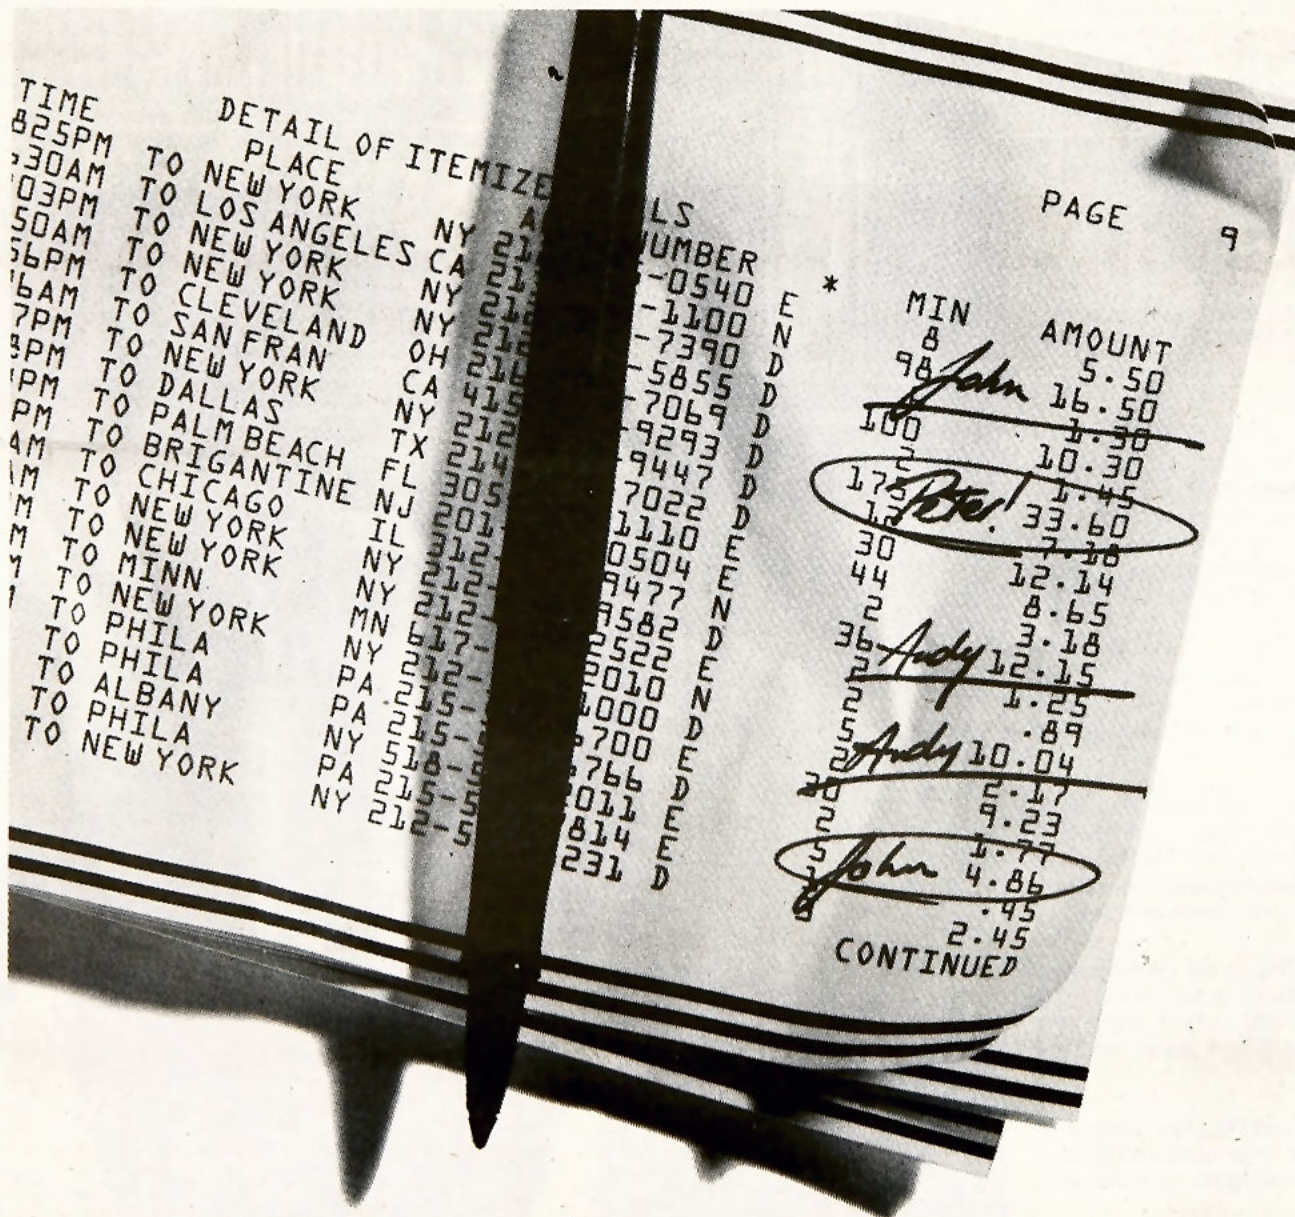 PAGE 9
DETAIL OF ITEMIZE LS
TIME PLACE NUMBER * MIN AMOUNT
825PM TO NEW YORK NY -0540 E 8 5.50
30AM TO LOS ANGELES CA -1100 N 98 John 16.50
03PM TO NEW YORK NY -7390 D 1.30
50AM TO NEW YORK NY -5855 D 100 10.30
56PM TO CLEVELAND OH 216 -7069 D 2 1.45
6AM TO SAN FRAN CA 415 -9293 D Peter! 33.60
7PM TO NEW YORK NY 212 -9447 D 7.18
PM TO DALLAS TX 214 7022 D 30 12.14
PM TO PALM BEACH FL 305 1110 E 44 8.65
PM TO BRIGANTINE NJ 201 0504 E 2 3.18
AM TO CHICAGO IL 312 9477 N 36 Andy 12.15
AM TO NEW YORK NY 212- 9582 D 2 1.25
M TO NEW YORK NY 212- 2522 E 2 .89
M TO MINN MN 617- 2010 N 5 Andy 10.04
TO NEW YORK NY 212- 1000 D 2 2.17
TO PHILA PA 215- 700 E 30 9.23
TO PHILA PA 215- 766 D 2 1.77
TO ALBANY NY 518- 011 E 5 John 4.86
TO PHILA PA 215-5 814 E .45
TO NEW YORK NY 212-5 231 D 8 2.45
CONTINUED